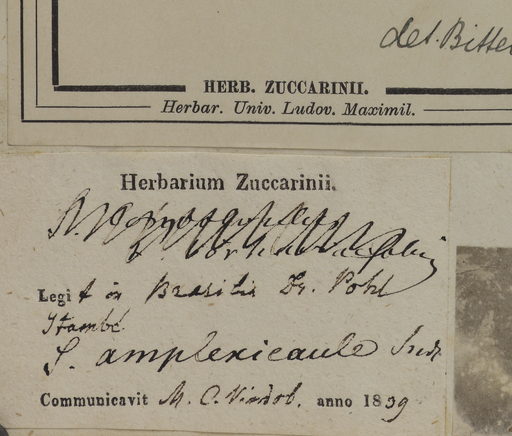 det. Bitter
HERB. ZUCCARINII.
Herbar. Univ. Ludov. Maximil.
Herbarium Zuccarinii.
Legit in Brasilia Dr. Pohl
Itambé
S. amplexicaule Sendt
Communicavit M. C. Vindob. anno 1839